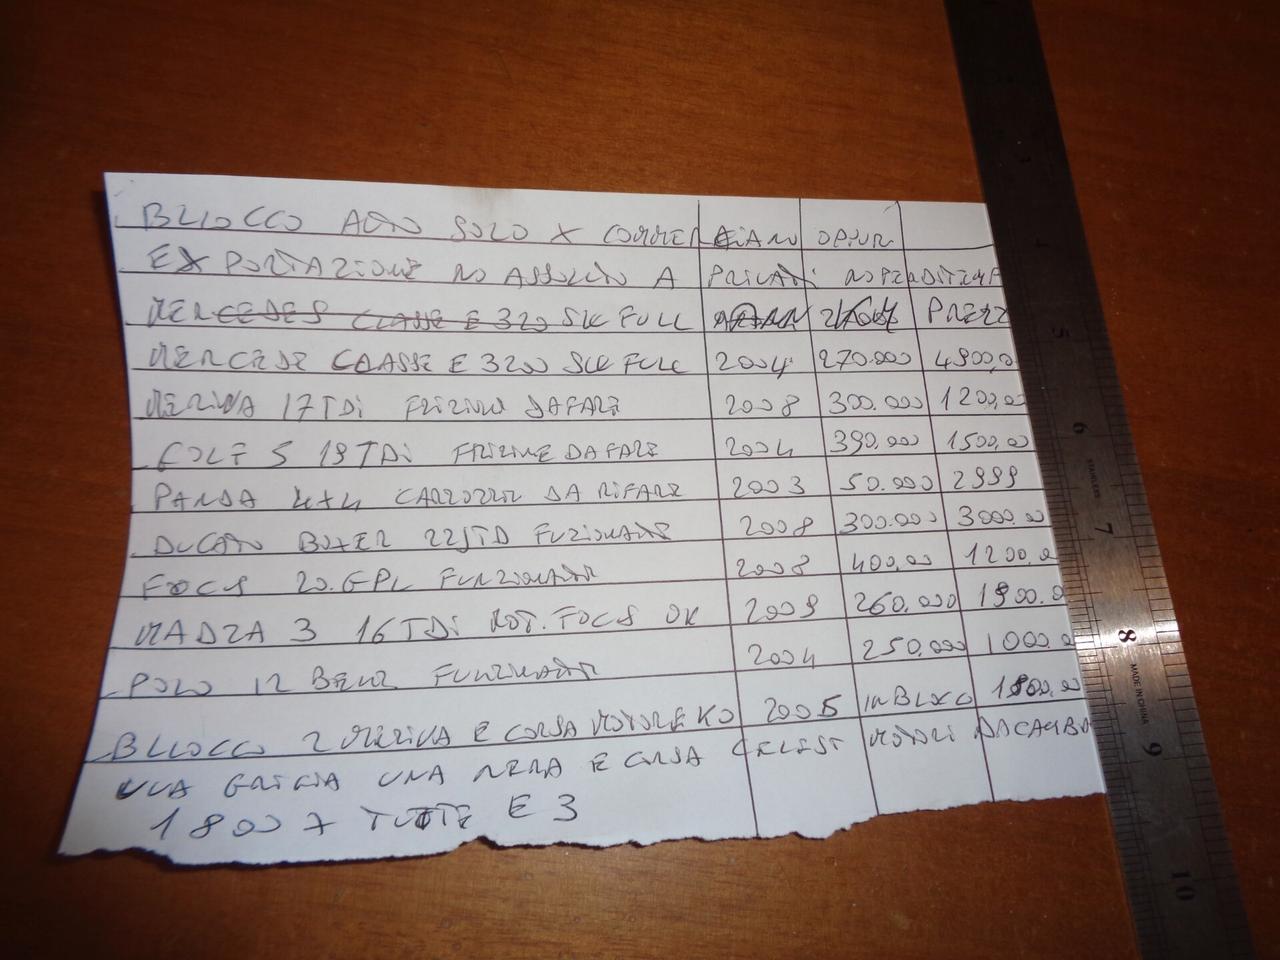 BLLOCCO AUTO SOLO X COMMERCIANO OPPUR
EXPORTAZIONE NO ASSOLUTO A PRIVATI NO PERDITEMP
MERCEDES CLASSE E 320 SW FULL PREZZ
MERCEDE CLASSE E 320 SW FULL 2004 270.000 4900,0
MERIVA 17 TDI FRIZION DAFARE 2008 300.000 1200,00
GOLF 5 19 TDI FRIZINE DA FARE 2004 390.000 1500,00
PANDA 4X4 CARROZZER DA RIFARE 2003 50.000 2999
DUCATO BOXER 22JTD FUZIONANTE 2008 300.000 3000.00
FOCUS 20.GPL FUNZIONANT 2008 400,00 1200.0
MADZA 3 16 TDI MOT. FOCUS OK 2009 260.000 1900.0
POLO 12 BENZ FUNZINANT 2004 250,000 1000.0
BLLOCCO 2 MERIVA E CORSA MOTORE KO 2005 IN BLOCO 1800,00
UNA GRIGIA UNA NERA E CORSA CELEST MOTORI DACAMBI
1800 X TUTTE E 3
3
4
5
6
7
8
9
10
STAINLESS
MADE IN CHINA